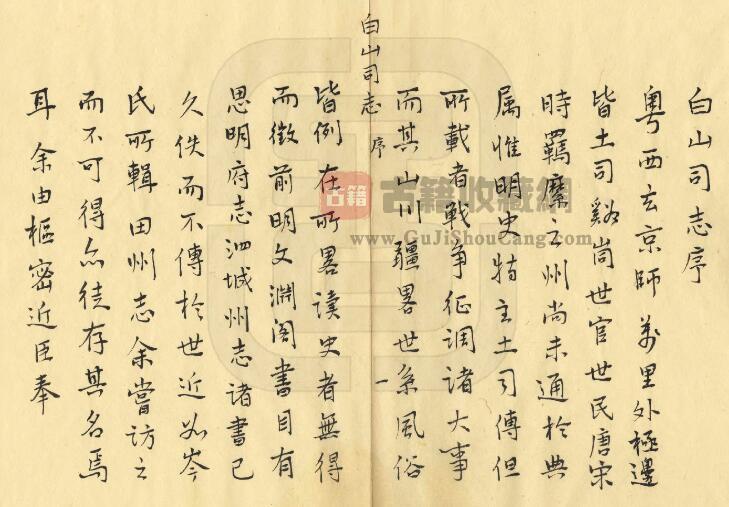 白山司志序
粤西去京師萬里外極邊
皆土司谿峝世官世民唐宋
時羈縻之州尚未通於典
属惟明史特立土司傳但
所載者戦争征調諸大事
而其山川疆畧世系風俗
白山司志 序 一
皆例在所畧讀史者無得
而徵前明文淵阁書目有
思明府志泗城州志諸書已
久佚而不傳於世近如岑
氏所輯田州志余嘗訪之
而不可得亦徒存其名焉
耳余由樞密近臣奉
古籍
古籍收藏網
www.GuJiShouCang.com